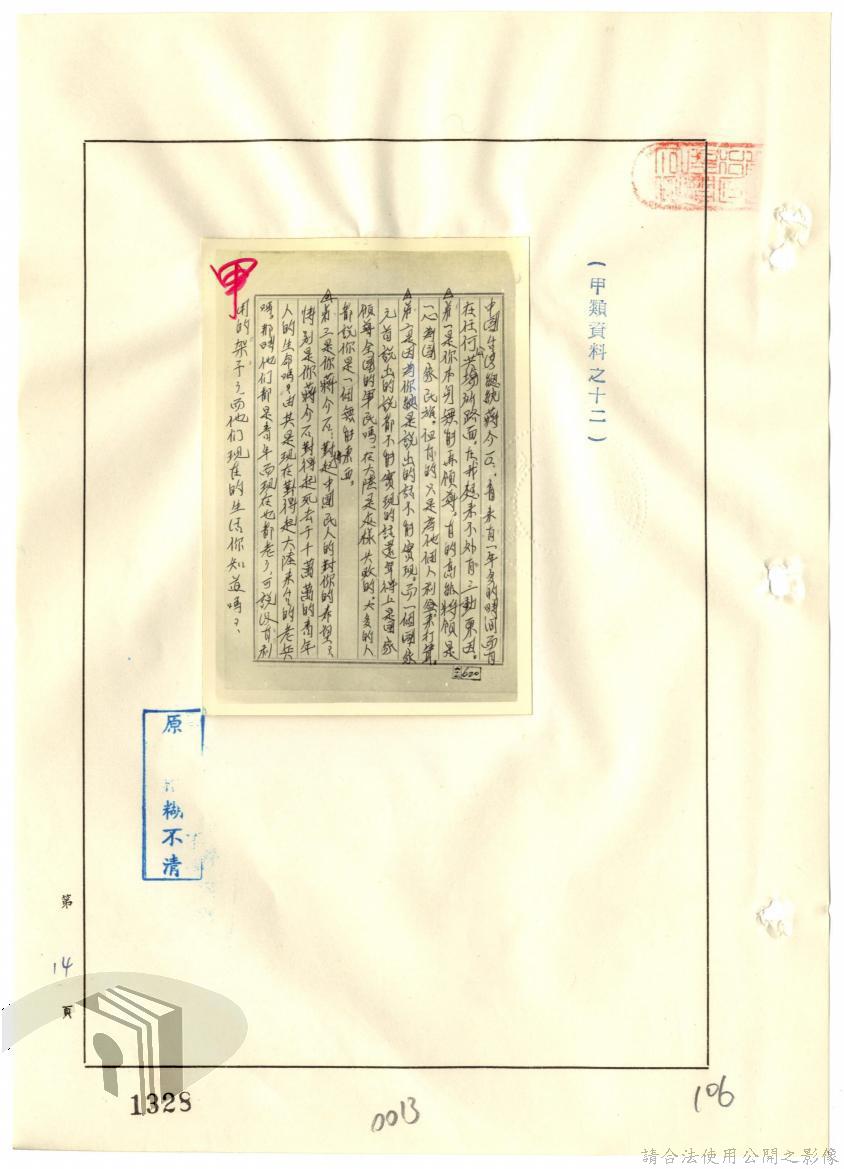 (甲類資料之十二)
甲
中國台灣總統蔣介石、看來有一年多的時間而有
在任何公場所路面在我想来不外有三動東西。
第一是你本身無能再領導。有的高級將領是
一心為國家民族。但有的只是為他個人利益来打算。
第二是因為你總是說出的話不能實現。而一個國家
元首說出的説都不能實現的話還算得上是國家
領導全國的軍民嗎、在大陸是怎樣失敗的、大多的人
都說你是一個無能東西。
第三是你蔣介石、對得起中國民人的對你的希望、
特別是你蔣介石對得起死去千十萬萬的青年
人的生命嗎。由其是現在對得起大陸来台的老兵
嗎、那時他们都是青年而現在也都老了、可說没有利
用的架子了、而他们現在的生活你知道嗎、
620
原
糊不清
第 14 頁
1328
0013
106
請合法使用公開之影像